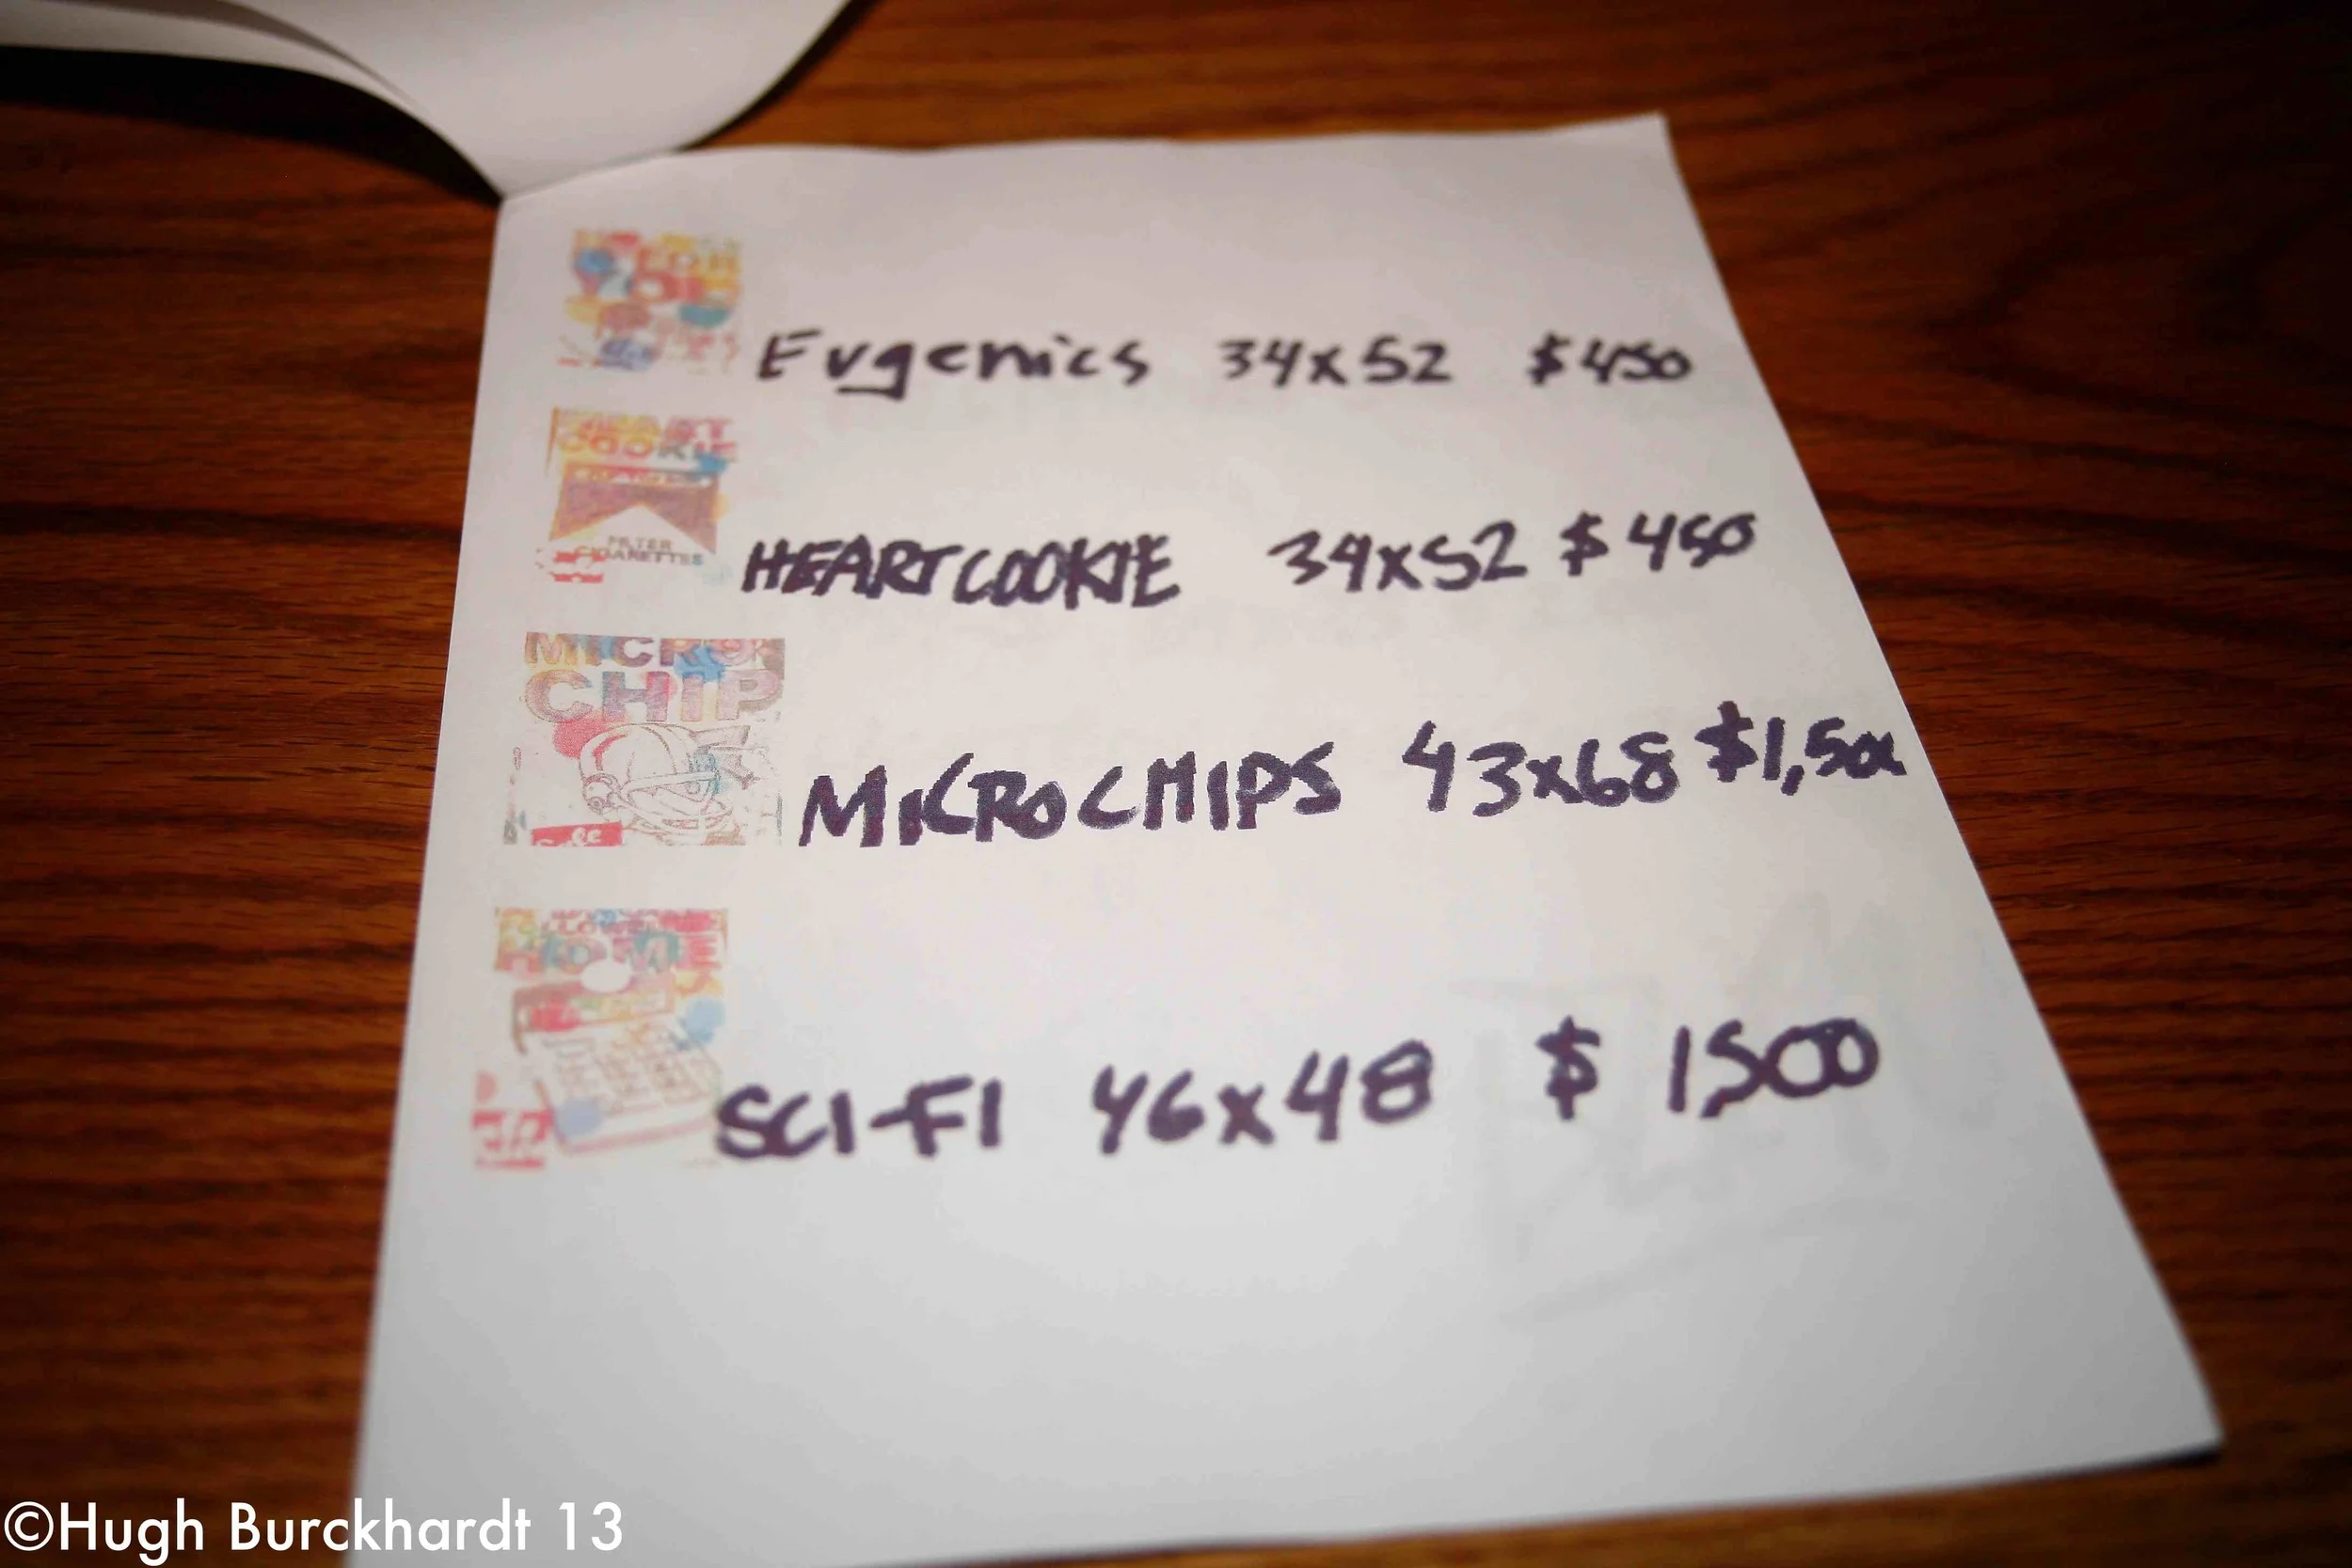 FOR
YOU
Eugenics 34x52 $450
HEART
COOKIE
FILTER
CIGARETTES
HEARTCOOKIE 34x52 $450
MICRO
CHIP
MICROCHIPS 43x68 $1,500
Safe
FOLLOW
HOME
SCI-FI 46x48 $1,500
©Hugh Burckhardt 13